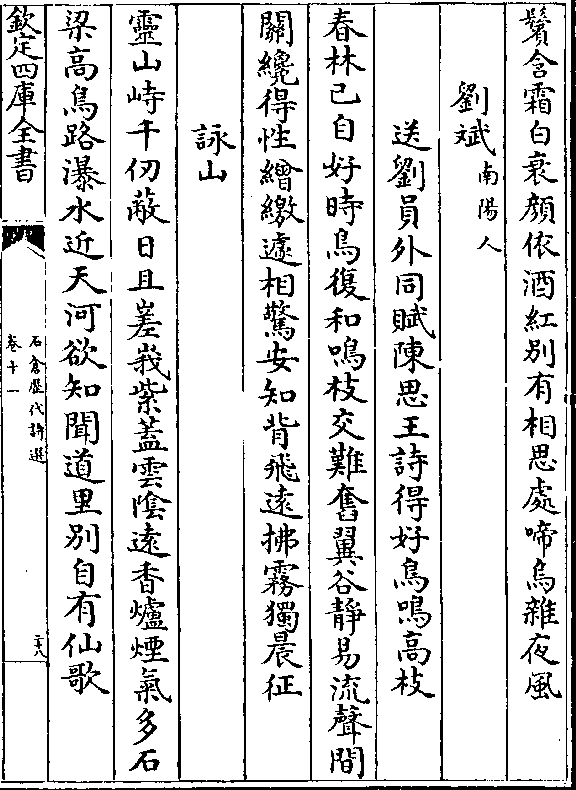 鬢含霜白衰顔依酒紅别有相思處啼烏雜夜風
劉斌南陽人
送劉員外同賦陳思王詩得好鳥鳴高枝
春林已自好時鳥復和鳴枝交難奮翼谷靜易流聲間
關纔得性繒繳遽相驚安知背飛逺拂霧獨晨征
詠山
靈山峙千仞蔽日且嵳峩紫葢雲陰逺香爐煙氣多石
梁高鳥路瀑水近天河欲知聞道里别自有仙歌
欽定四庫全書
石倉歷代詩選
卷十一
二八